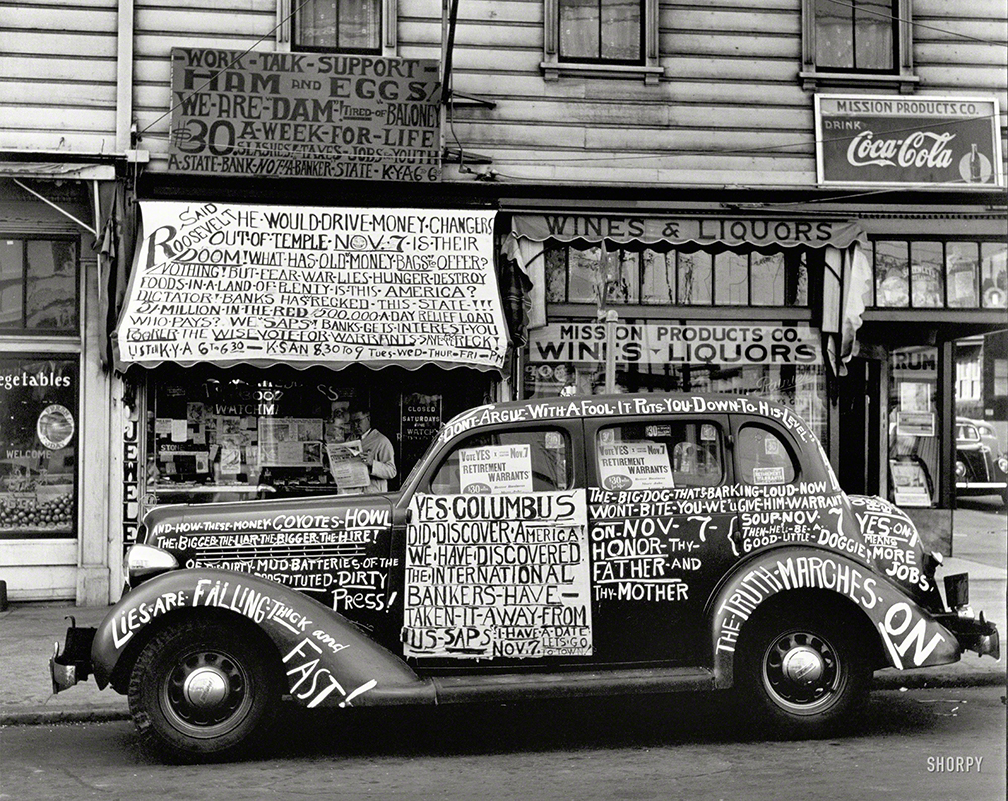 WORK-TALK-SUPPORT-
HAM AND EGGS!
WE-ARE-DAM-! TIRED-OF BALONEY
$30 A-WEEK-FOR-LIFE
SLASHES-TAXES-JOBS-YOUTH
A-STATE-BANK-NOT-A-BANKER-STATE-K-Y-A 6-6
MISSION PRODUCTS CO.
DRINK
Coca-Cola
SAID
ROOSEVELT HE-WOULD-DRIVE-MONEY-CHANGERS
OUT-OF-TEMPLE-NOV.-7-IS-THEIR
DOOM! WHAT-HAS-OLD-"MONEY-BAGS" TO-OFFER?
NOTHING! BUT-FEAR-WAR-LIES-HUNGER-DESTROY
FOODS-IN-A-LAND-OF-PLENTY-IS-THIS-AMERICA?
DICTATOR! BANKS HAS RECKED-THIS-STATE!!!
MILLION-IN-THE-RED $500,000-A-DAY RELIEF LOAD
WHO-PAYS? WE "SAPS" BANKS-GETS-INTEREST-YOU
VOTE-FOR-WARRANTS-SAVE-RECK!
K-Y-A 6 TO 6-30-K-SAN 8 30 TO 9 TUES-WED-THUR-FRI-PM
WINES & LIQUORS
MISSION PRODUCTS CO.
WINES LIQUORS
RUM
egetables
WELCOME
JEWELE
WATCH
CLOSED
SATURDAYS
"DONT-ARGUE-WITH-A-FOOL-IT PUTS-YOU-DOWN-TO-HIS-LEVEL"
VOTE YES Nov. 7
RETIREMENT
WARRANTS
$30
VOTE YES Nov. 7
RETIREMENT
WARRANTS
$30
AND-HOW-THESE-MONEY COYOTES-HOWL
THE-BIGGER-THE-LIAR-THE-BIGGER-THE-HIRE!
OF DIRTY-MUD-BATTERIES-OF-THE
PROSTITUTED-DIRTY
PRESS!
LIES-ARE-FALLING-THICK and
FAST!
YES-COLUMBUS
DID-DISCOVER-AMERICA
WE-HAVE-DISCOVERED
THE-INTERNATIONAL
BANKERS-HAVE-
TAKEN-IT-AWAY-FROM
US-SAPS-! I-HAVE-A-DATE
NOV. 7. LETS-GO
TO-TOWN!
THE-BIG-DOG-THATS-BARKING-LOUD-NOW
WONT-BITE-YOU-WE'LL GIVE-HIM-WARRANT
SOUP-NOV. 7
THEN-HE'LL-BE-A-
GOOD-LITTLE-DOGGIE
ON-NOV-7-
HONOR-THY-
FATHER-AND
THY-MOTHER
YES-ON-7
MEANS
MORE
JOBS!
THE-TRUTH-MARCHES-ON
SHORPY